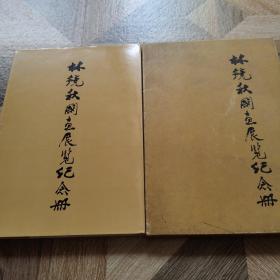 林锐秋国画展览纪念册
林锐秋国画展览纪念册